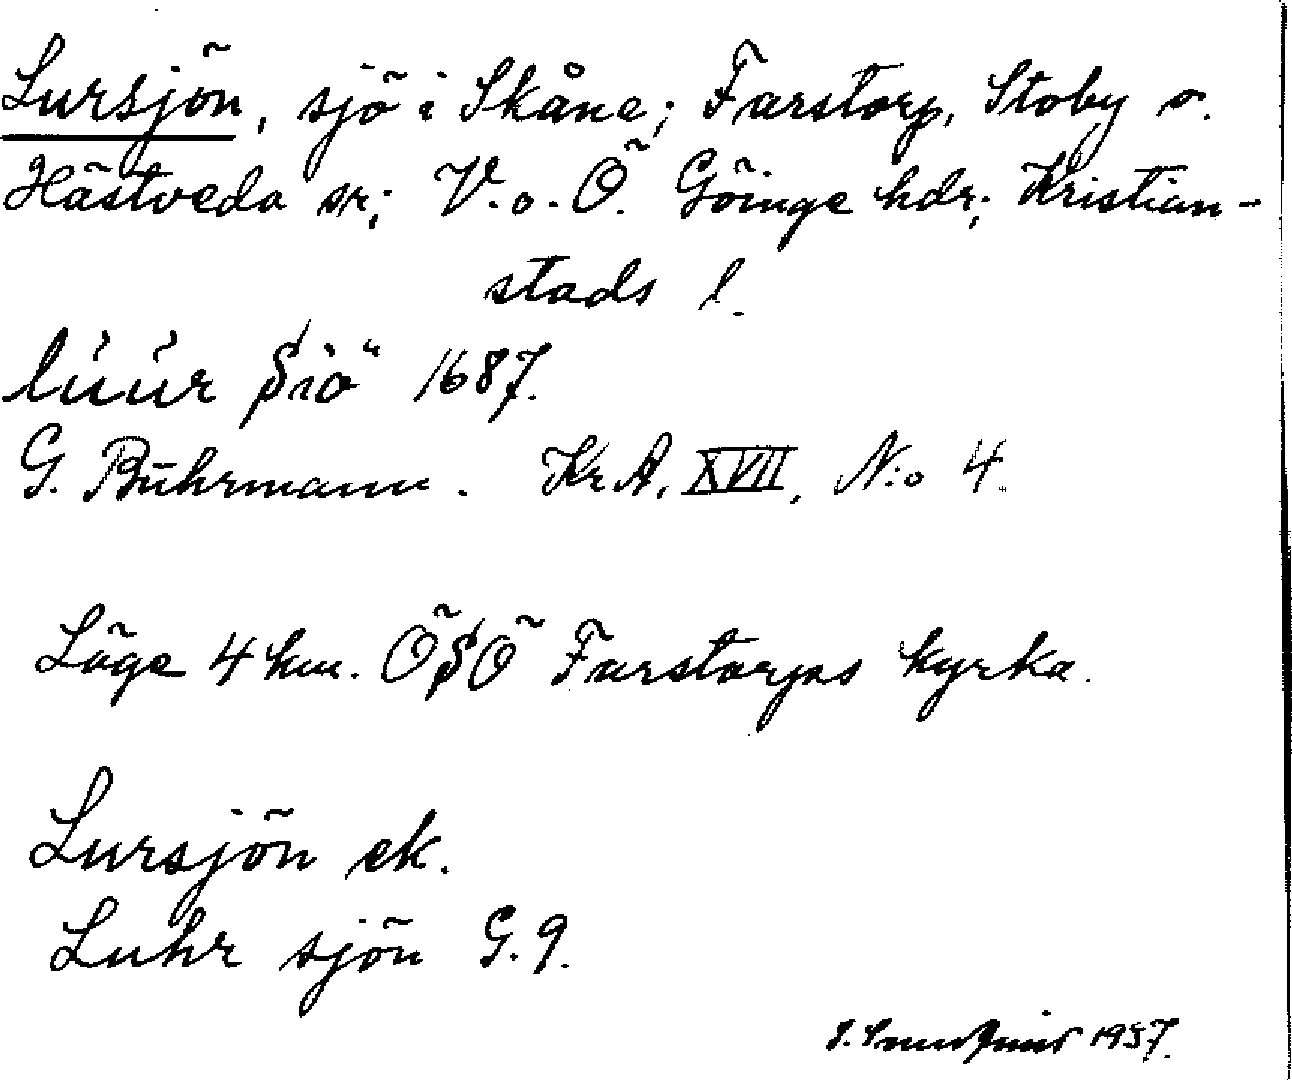 Lursjön, sjö i Skåne; Farstorp, Stoby o.
Hästveda sn; V. o. Ö. Göinge hdr; Kristian-
stads l.
lúúr Siö 1687.
G. Buhrmann. Kr A, XVII, N:o 4.
Läge 4 km. ÖSÖ Farstorps kyrka.
Lursjön ek.
Luhr sjön G. 9.
1937.